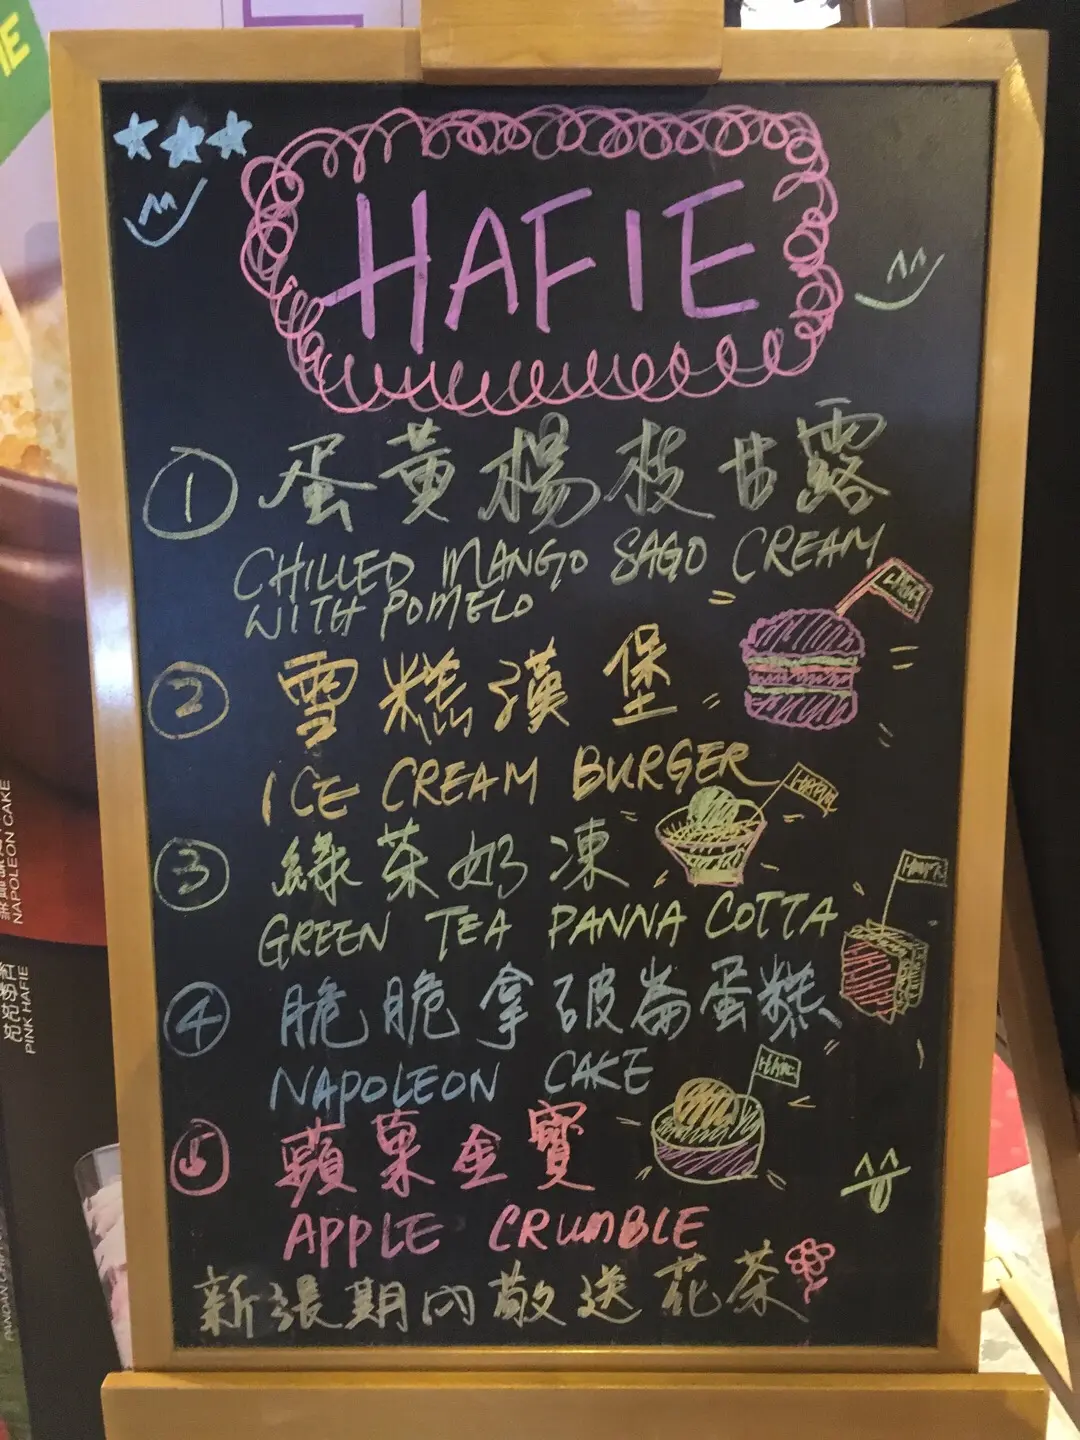 HAFIE
① 蛋黃楊枝甘露
CHILLED MANGO SAGO CREAM
WITH POMELO
② 雪糕漢堡
ICE CREAM BURGER
③ 綠茶奶凍
GREEN TEA PANNA COTTA
④ 脆脆拿破崙蛋糕
NAPOLEON CAKE
⑤ 蘋菓金寶
APPLE CRUMBLE
新張期內敬送花茶
NAPOLEON CAKE
PINK HAFIE